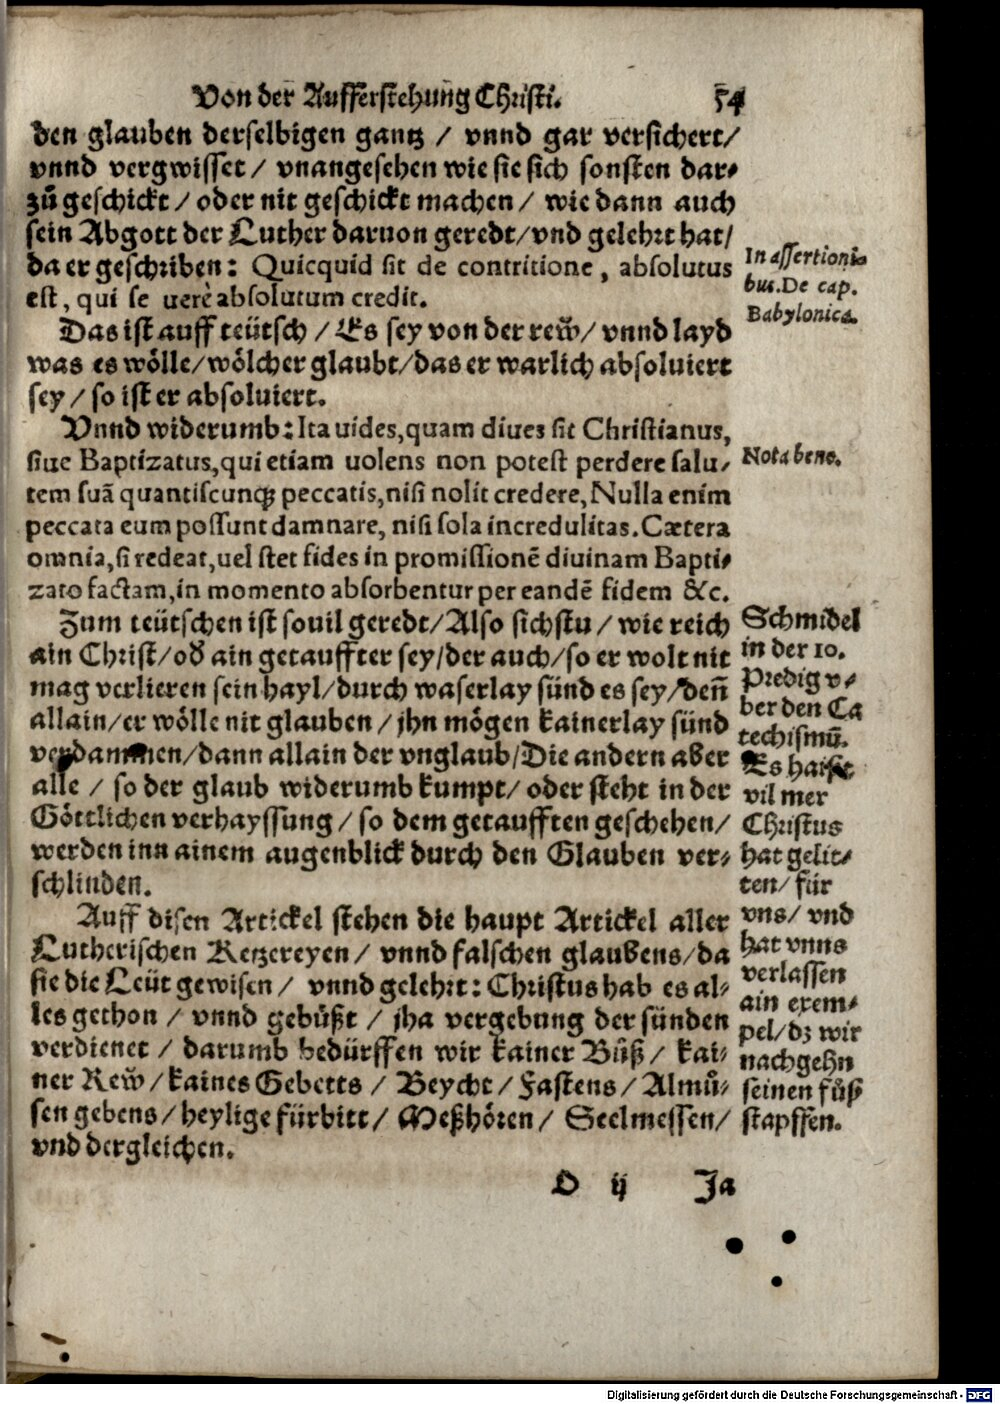 Von der Aufferstehung Christi. 54
den glauben derselbigen gantz / vnnd gar versichert/
vnnd vergwisset / vnangesehen wie sie sich sonsten dar⸗
zů geschickt / oder nit geschickt machen / wie dann auch
sein Abgott der Luther daruon geredt/vnd gelehrt hat/
da er geschriben: Quicquid sit de contritione, absolutus
est, qui se uerè absolutum credit.
Das ist auff teütsch / Es sey von der rew̃/ vnnd layd
was es wölle/wölcher glaubt/das er warlich absoluiert
sey / so ist er absoluiert.
Vnnd widerumb: Ita uides, quam diues sit Christianus,
siue Baptizatus, qui etiam uolens non potest perdere salu⸗
tem suã quantiscunqꝫ peccatis, nisi nolit credere, Nulla enim
peccata eum possunt damnare, nisi sola incredulitas. Cætera
omnia, si redeat, uel stet fides in promissionẽ diuinam Bapti⸗
zato factam, in momento absorbentur per eandẽ fidem &c.
Zum teütschen ist souil geredt/Also sichstu / wie reich
ain Christ/oď ain getauffter sey/der auch/so er wolt nit
mag verlieren sein hayl/durch waserlay sünd es sey/deñ
allain/er wölle nit glauben / jhn mögen kainerlay sünd
verdammen/dann allain der vnglaub/Die andern aber
alle / so der glaub widerumb kumpt/ oder steht in der
Göttlichen verhayssung / so dem getaufften geschehen/
werden inn ainem augenblick durch den Glauben ver⸗
schlinden.
Auff disen Artickel stehen die haupt Artickel aller
Lutherischen Ketzereyen / vnnd falschen glaubens/da
sie die Leüt gewisen / vnnd gelehrt: Christus hab es al⸗
les gethon / vnnd gebůßt / jha vergebung der sünden
verdienet / darumb bedürffen wir kainer Bůß / kai⸗
ner Rew̃ / kaines Gebetts / Beycht / Fastens / Almů⸗
sen gebens / heylige fürbitt / Meßhören / Seelmessen/
vnd dergleichen.
D ij Ja
In assertionibus
bus. De cap.
Babylonica.
Nota bene.
Schmidel
in der 10.
Predig v⸗
ber den Ca
techismũ.
Es haißt
vil mer
Christus
hat gelit⸗
ten/ für
vns/ vnd
hat vnns
verlassen
ain exem⸗
pel/dz wir
nachgehn
seinen fůß
stapffen.
Digitalisierung gefördert durch die Deutsche Forschungsgemeinschaft - DFG